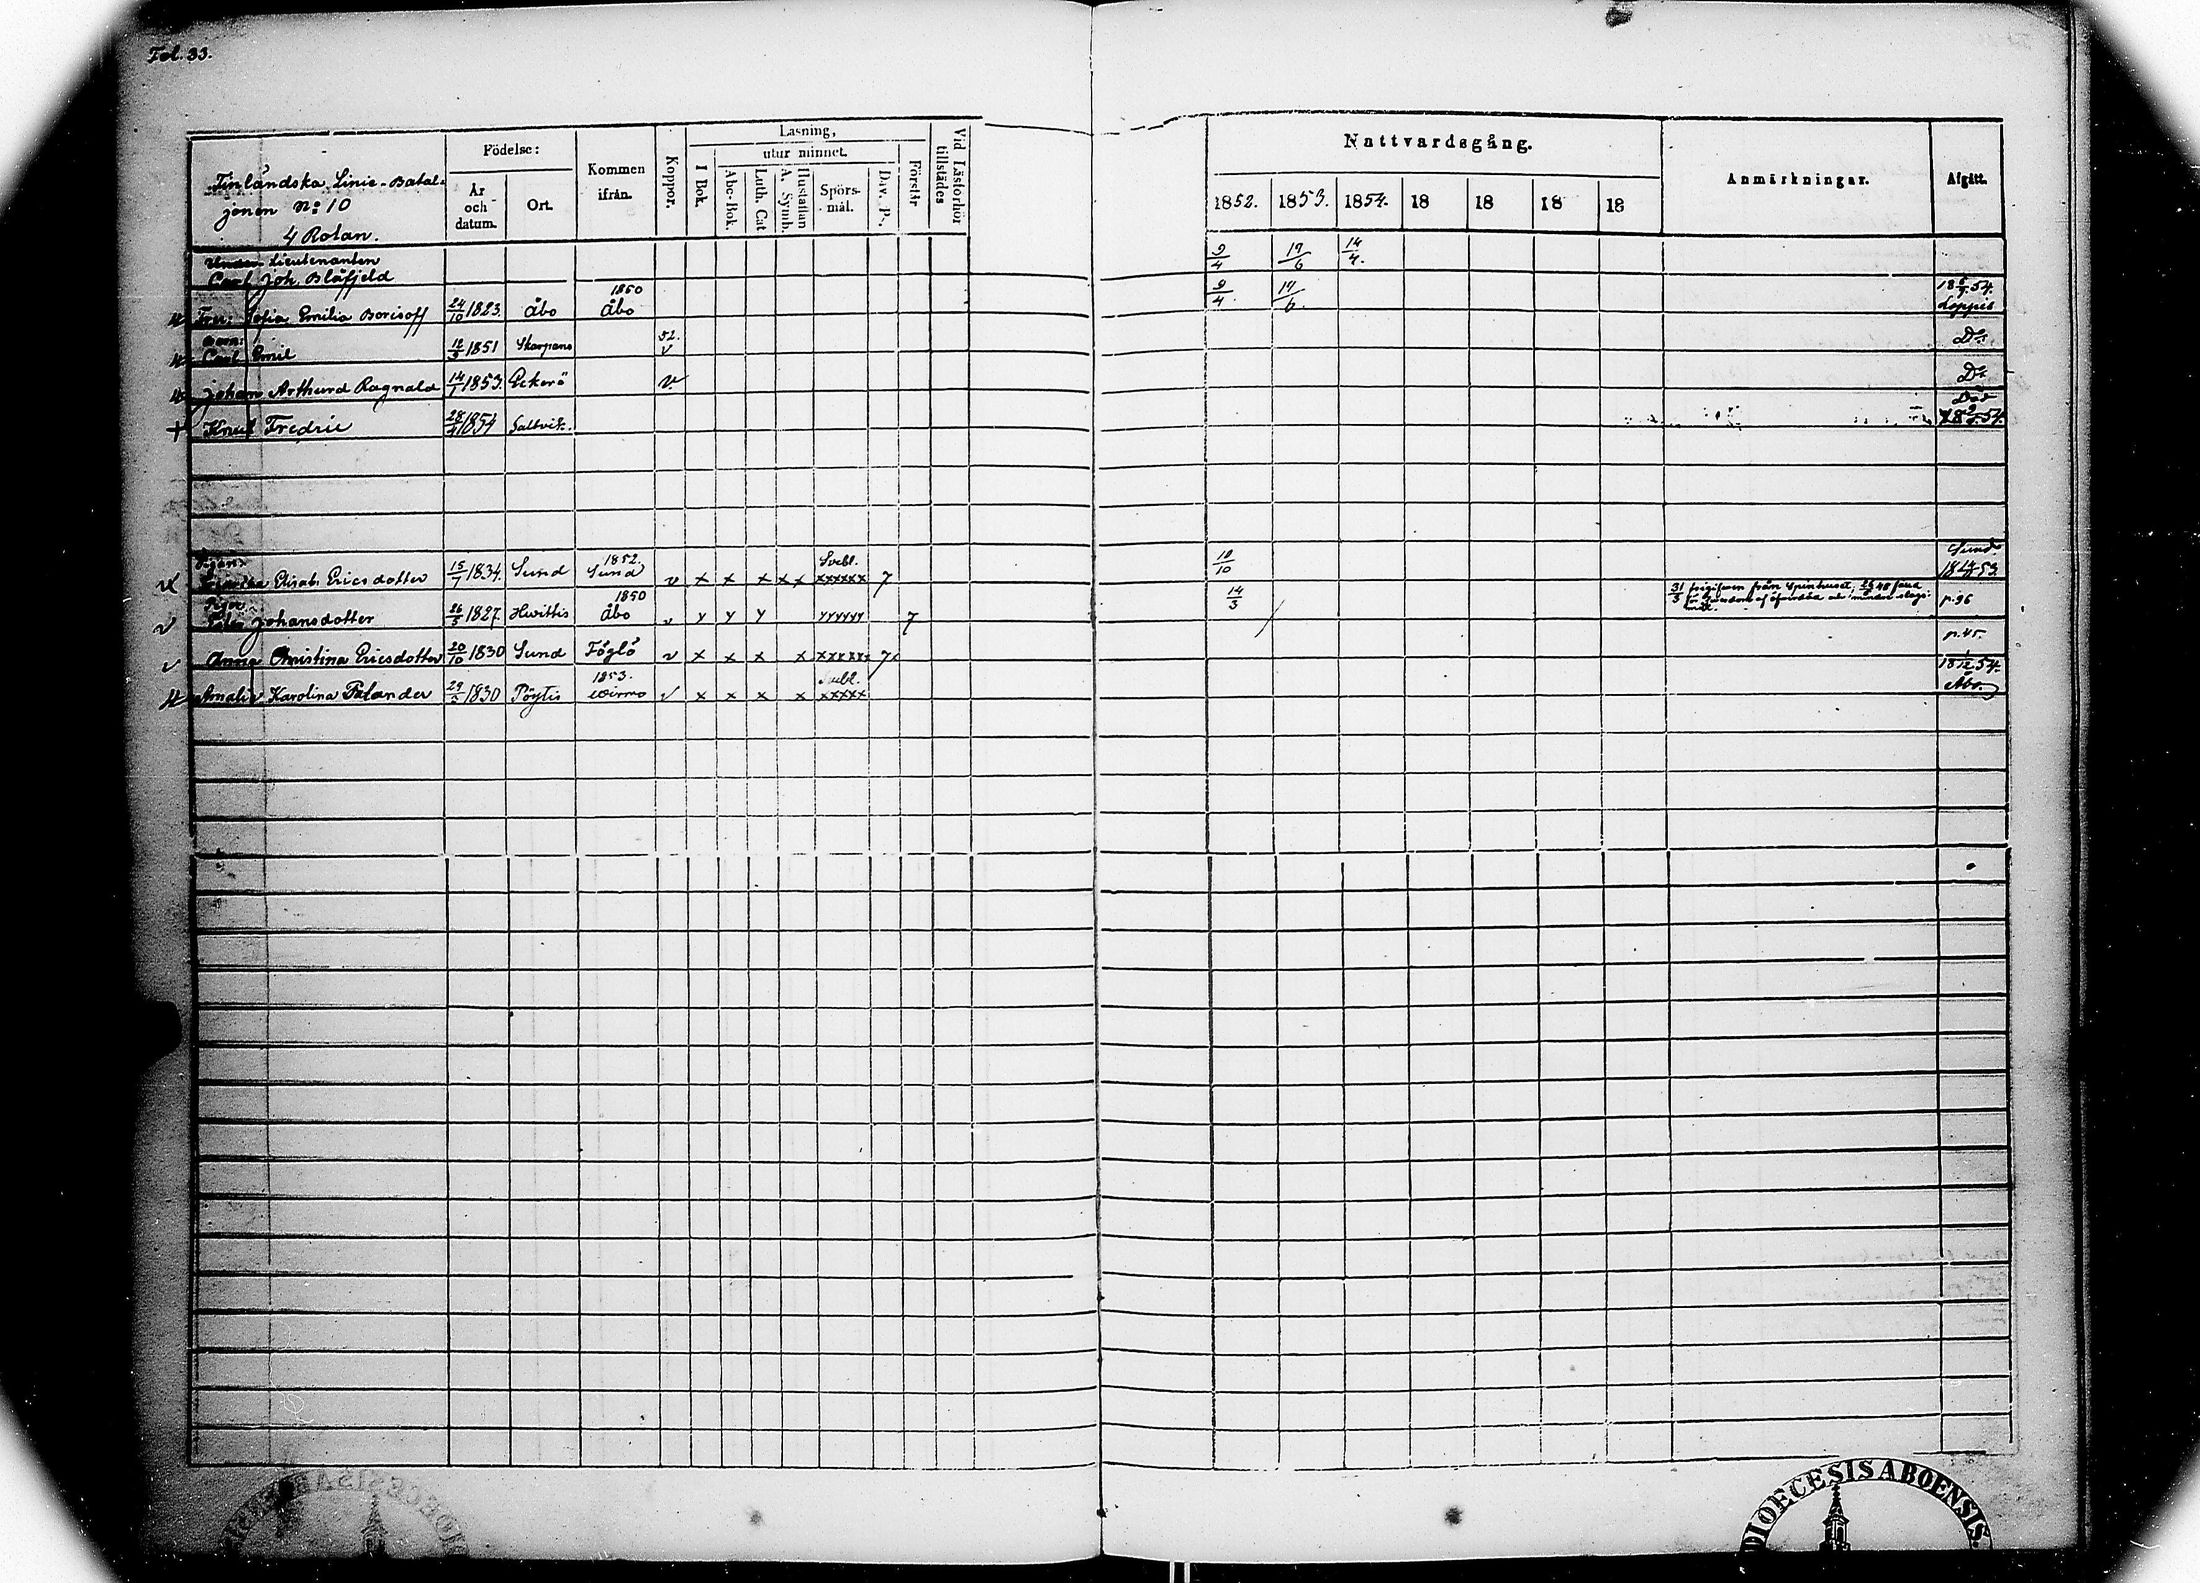 Fol. 33.
Finländska Linie-Batal-
jonen No: 10
4 Rotan.
Födelse:
År och datum.
Ort.
Kommen ifrån.
Koppor.
Läsning,
I Bok.
utur minnet.
Abc-Bok.
Luth. Cat
A. Symb.
Hustaflan
Spörs-mål.
Dav. P.
Förstår
Vid Läsförhör tillstädes
Nattvardsgång.
1852. 1853. 1854. 18 18 18 18
Anmärkningar.
Afgått.
Under Lieutenanten
Carl Joh. Blåfjeld 9/4 19/6 14/4.
1850
Fru: Sofia Emilia Borisoff 24/10 1823. Åbo Åbo 9/4. 19/6. Loppis
Barn:
Carl Emil 1851 Skarpans 52. v Do
Johan Arthurd Ragnald 14/1 1853. Eckerö v Do
+ Knut Fredric 28/4 1854 Saltvik. Död 54.
Pigan
Elisab. Ericsdotter 15/7 1834. Sund 1852. Sund v x x x x x Svebl. xxxxxx 7 10/10 Sund 53.
Johansdotter 26/5 1827. Hvittis 1850 Åbo v y y y yyyyyy 7 14/3 31/3 från Spinhuset, p. 96
v Anna Christina Ericsdotter 20/10 1830 Sund Föglö v x x x x xxxxxx 7. p. 45.
Amalia Karolina Palander 29/3 1830 Pöytis 1853. Wirmo v x x x x Svebl. xxxxx 18 1/12 54. Åbo.
DIOECESIS ABOENSIS.